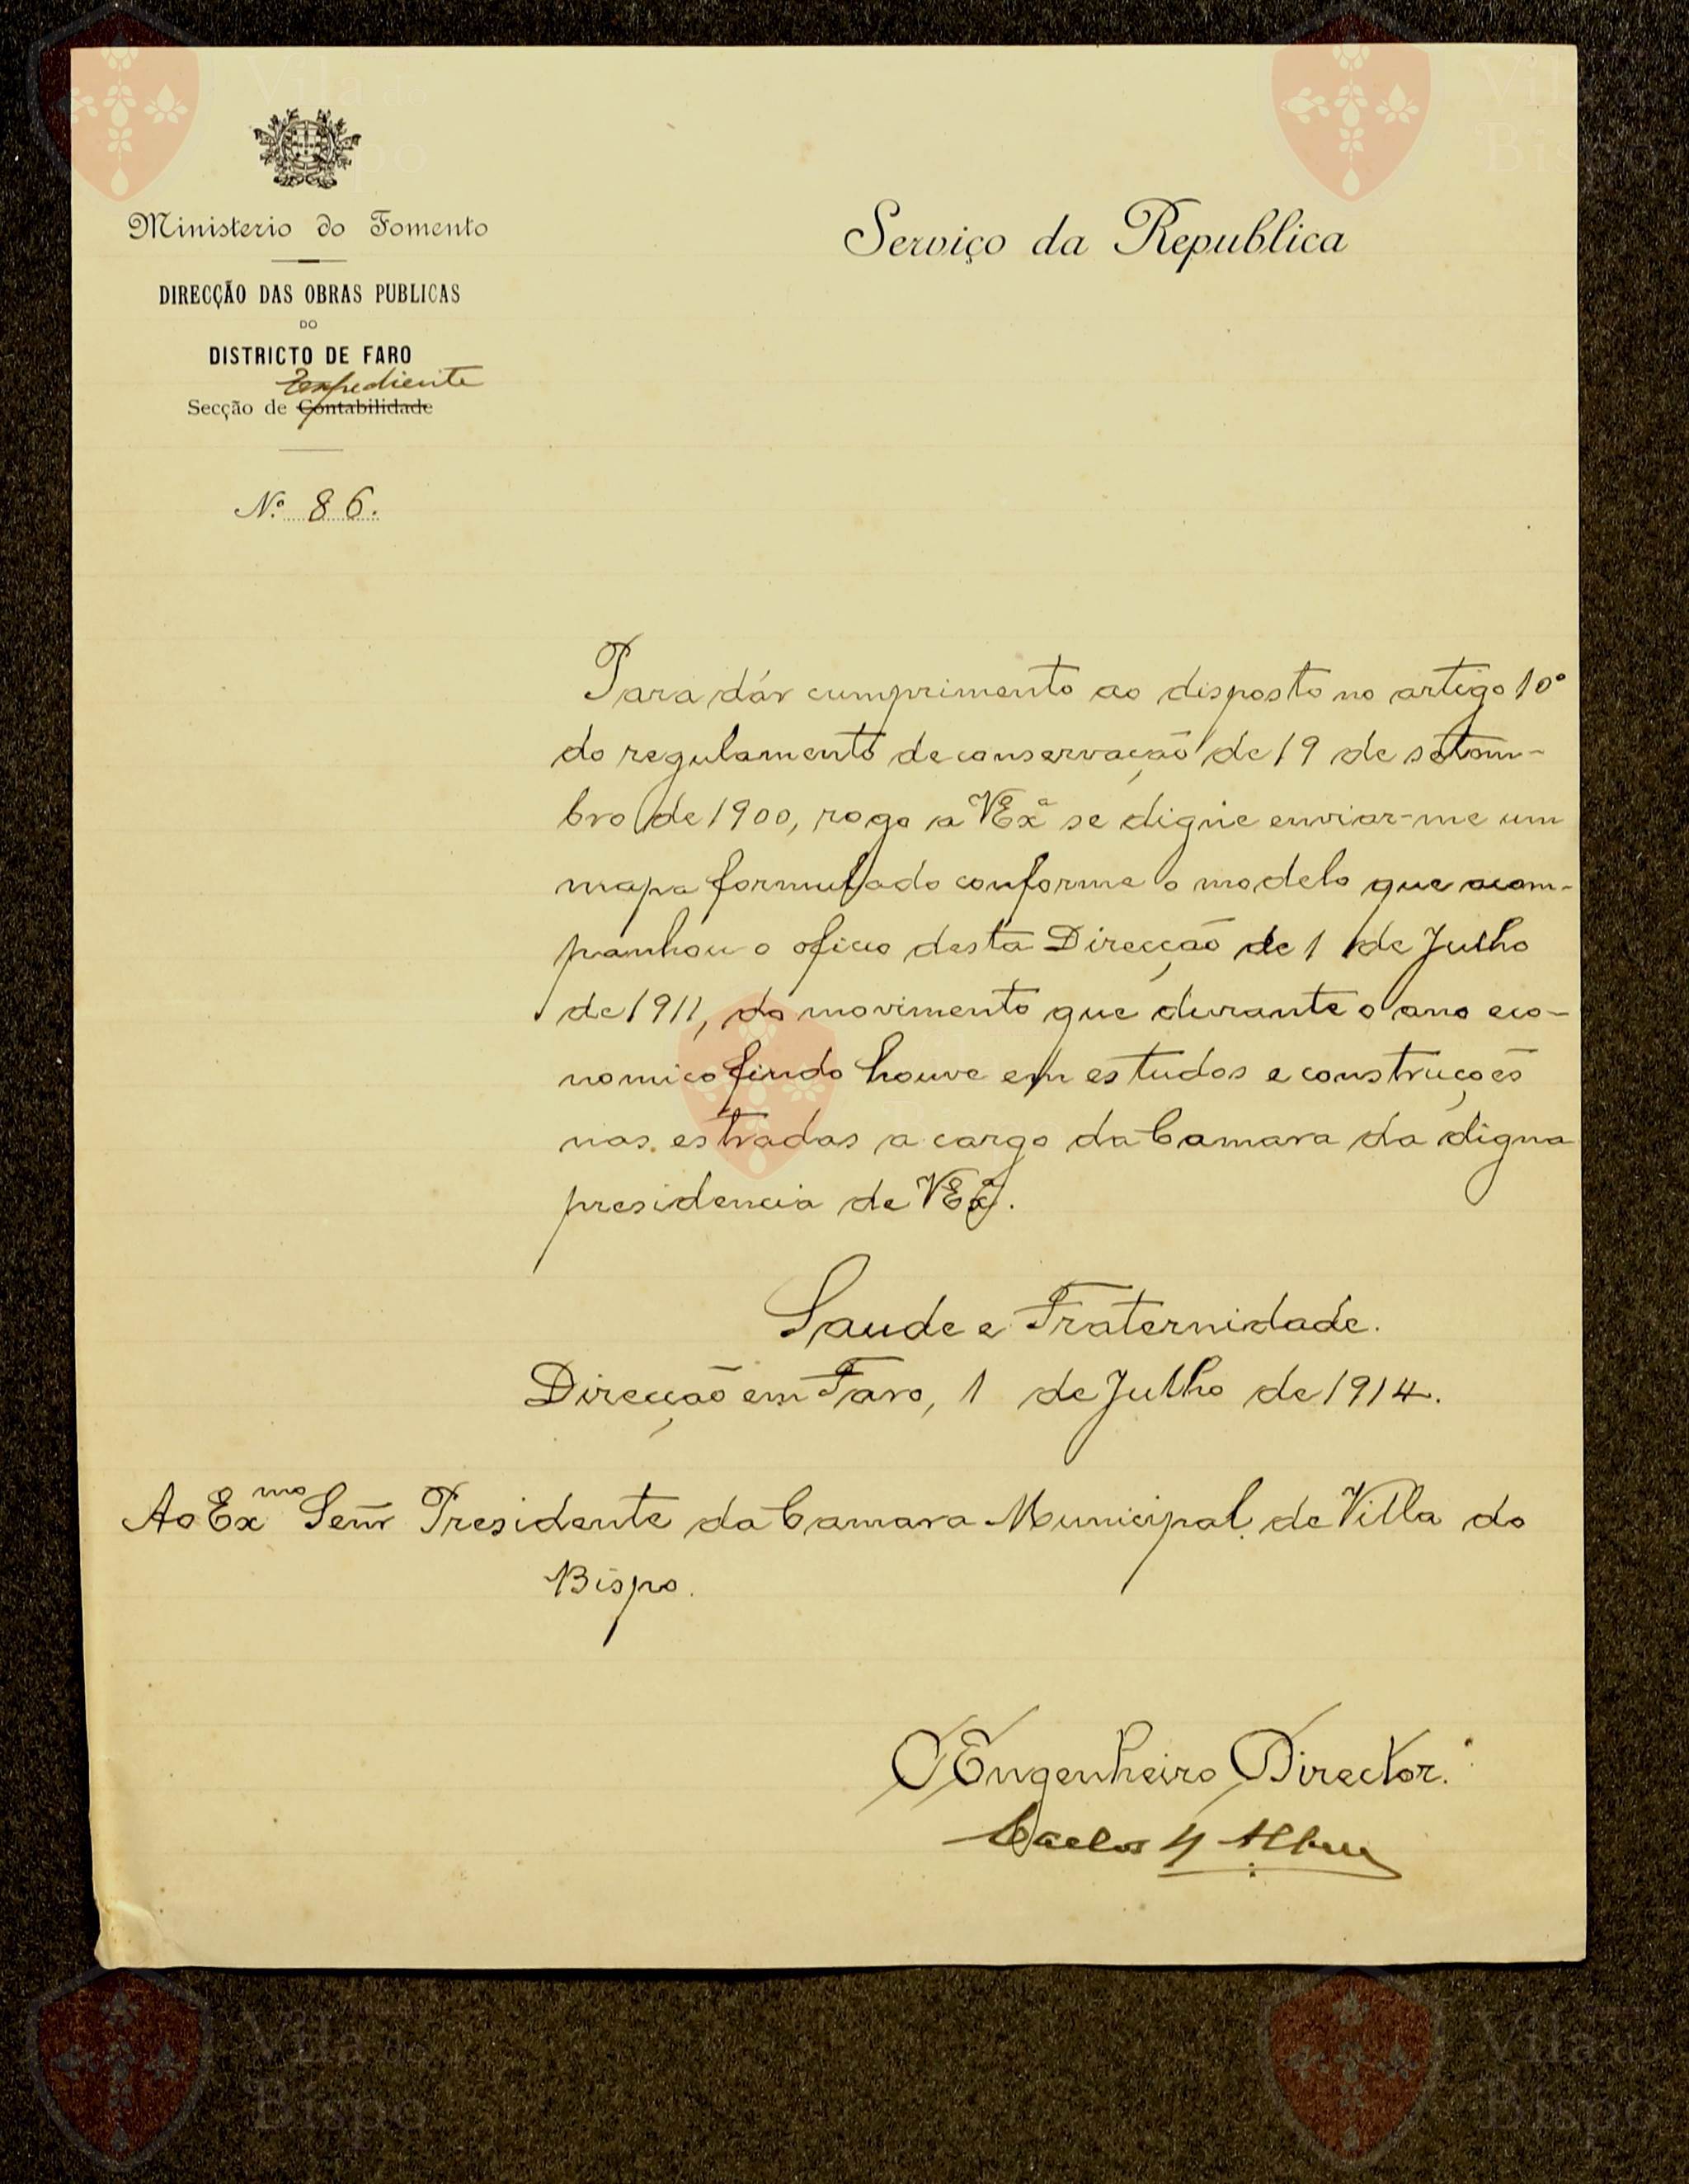 Ministerio do Fomento
DIRECÇÃO DAS OBRAS PUBLICAS
DO
DISTRICTO DE FARO
Expediente
Secção de Contabilidade
N.º 86.
Serviço da Republica
Para dár cumprimento ao disposto no artigo 10º
do regulamento de conservação de 19 de setem-
bro de 1900, rogo a VExª se digne enviar-me um
mapa formulado conforme o modelo que acom-
panhou o oficio desta Direcção de 1 de Julho
de 1911, do movimento que durante o ano eco-
nomico findo houve em estudos e construções
nas estradas a cargo da Camara da digna
presidencia de VExª.
Saude e Fraternidade.
Direcção em Faro, 1 de Julho de 1914.
Ao Exmo Senr Presidente da Camara Municipal de Villa do
Bispo.
O Engenheiro Director.
Carlos
Vila do
Bispo
Vila do
Bispo
Vila do
Bispo
Vila do
Bispo